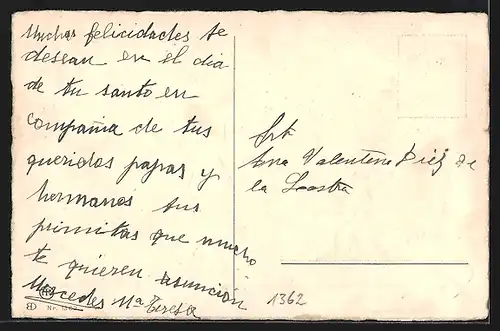 Muchas felicidades te
desean en el dia
de tu santo en
compañia de tus
queridos papas y
hermanos tus
primitas que mucho
te quieren asunción
Mercedes Mª Teresa
Srt
Ana Valentina Diez de
la Lastra
1362